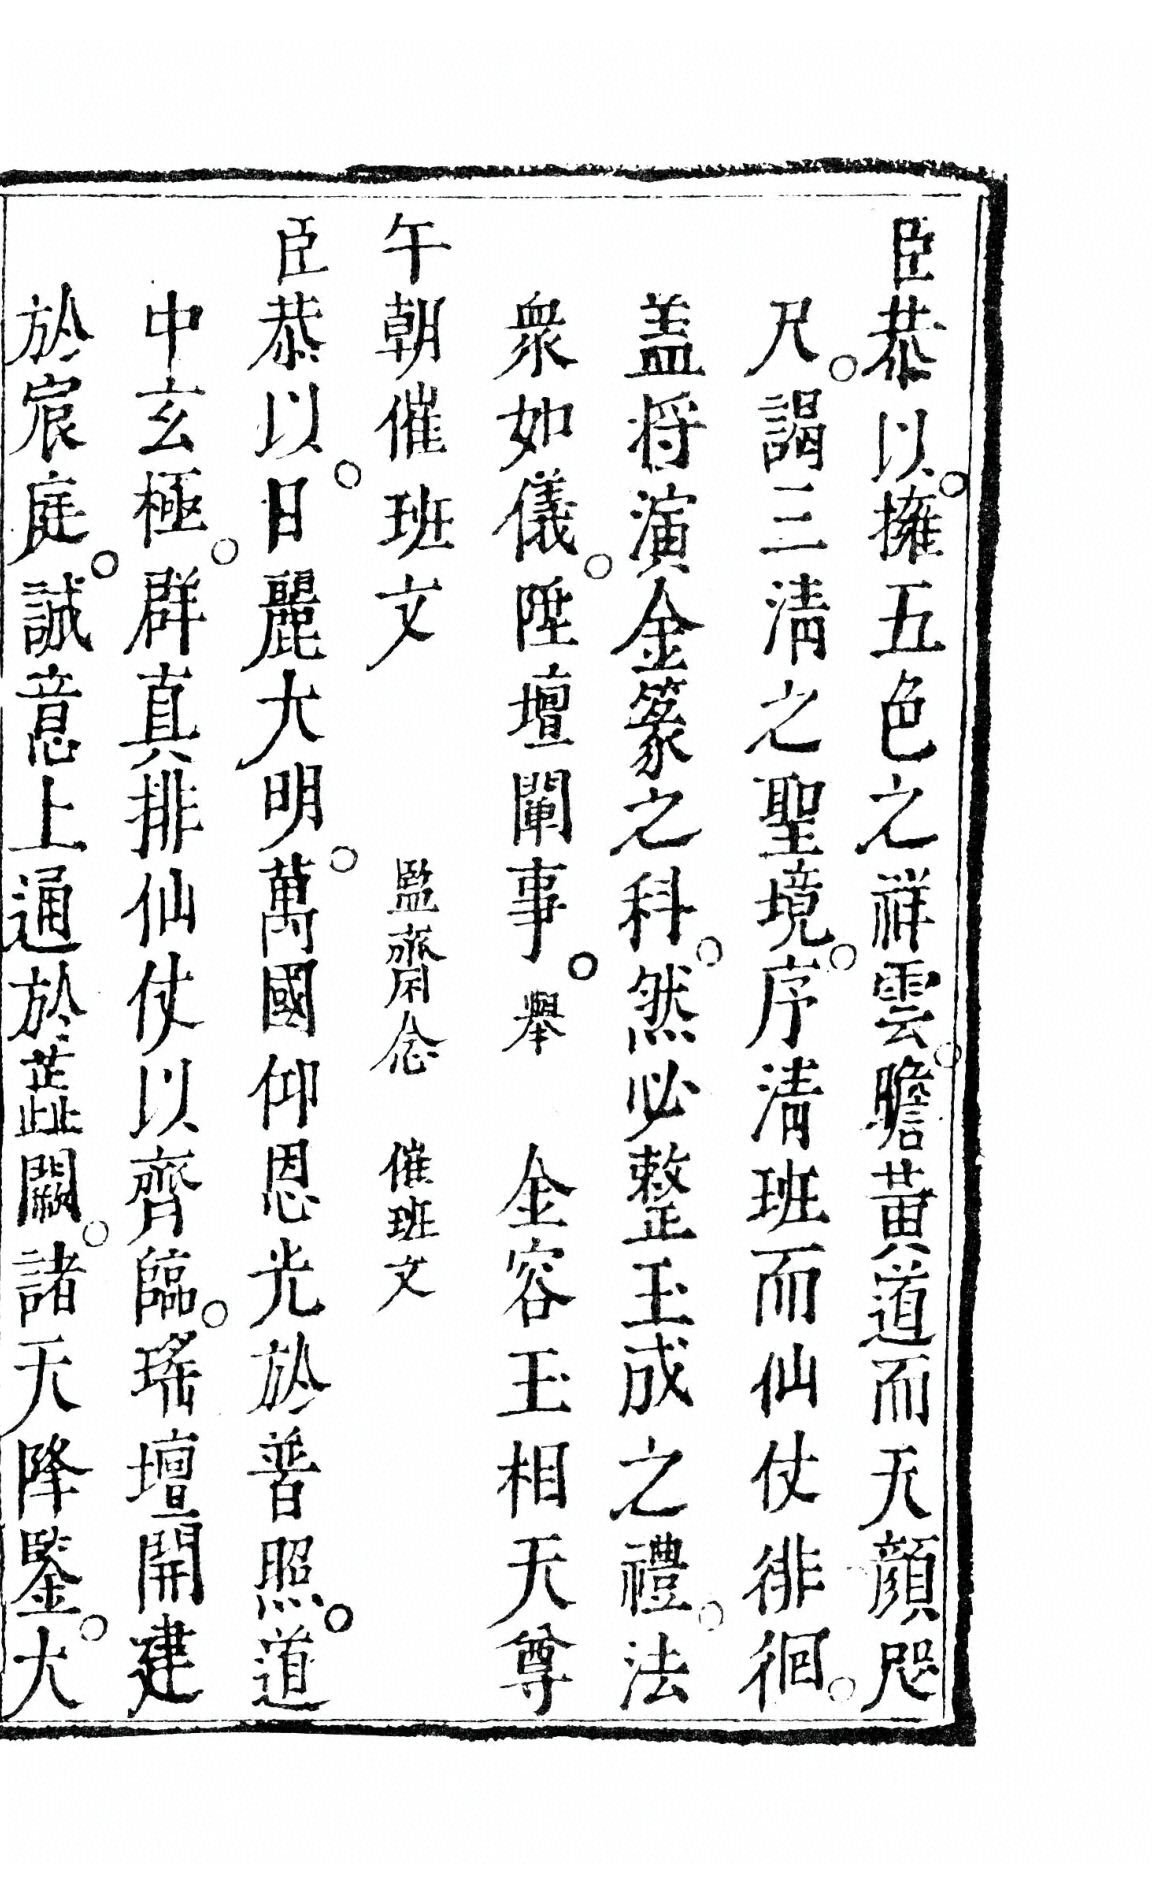 臣恭以。擁五色之祥雲。瞻黃道而天顔咫
尺。謁三淸之聖境。序淸班而仙仗徘徊。
盖將演金篆之科。然必整玉成之禮。法
衆如儀。陞壇闡事。舉　金容玉相天尊
午朝催班文　監齋念　催班文
臣恭以。日麗大明。萬國仰恩光於普照。道
中玄極。群真排仙仗以齊臨。瑤壇開建
於宸庭。誠意上通於蕋闕。諸天降鑒。大